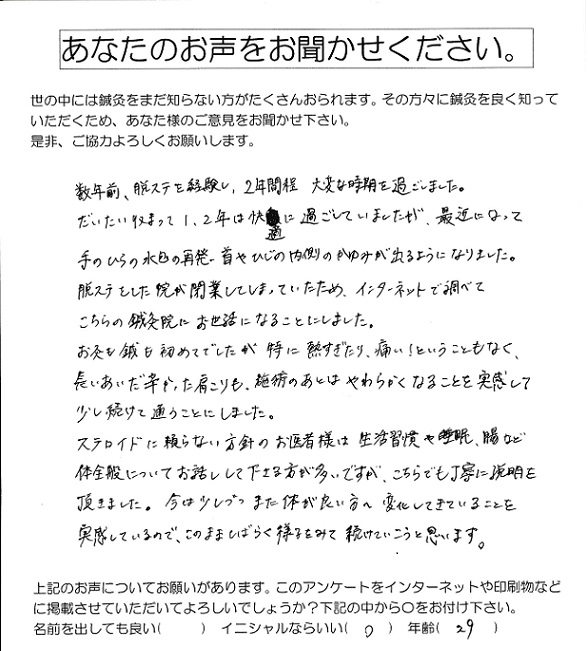 あなたのお声をお聞かせください。
世の中には鍼灸をまだ知らない方がたくさんおられます。その方々に鍼灸を良く知って
いただくため、あなた様のご意見をお聞かせ下さい。
是非、ご協力よろしくお願いします。
数年前、脱ステを経験し、2年間程 大変な時期を過ごしました。
だいたい収まって1、2年は快適に過ごしていましたが、最近になって
手のひらの水疱の再発、首やひじの内側のかゆみが出るようになりました。
脱ステをした院が閉業してしまっていたため、インターネットで調べて
こちらの鍼灸院にお世話になることにしました。
お灸も鍼も初めてでしたが特に熱すぎたり、痛い!ということもなく、
長いあいだ辛かった肩こりも、施術のあとはやわらかくなることを実感して
少し続けて通うことにしました。
ステロイドに頼らない方針のお医者様は生活習慣や睡眠、腸など
体全般についてお話しして下さる方が多いですが、こちらでも丁寧に説明を
頂きました。今は少しづつまた体が良い方へ変化してきていることを
実感しているので、このまましばらく様子をみて続けていこうと思います。
上記のお声についてお願いがあります。このアンケートをインターネットや印刷物など
に掲載させていただいてよろしいでしょうか?下記の中から〇をお付け下さい。
名前を出しても良い( ) イニシャルならいい( 〇 ) 年齢( 29 )